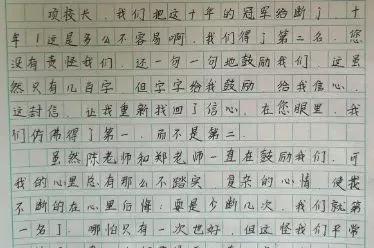 项校长,我们把这十年的冠军给断了,十
年!这是多么不容易啊,我们得了第二名,您
没有责怪我们,还一句一句地鼓励我们,这虽
然只有几百字,但字字给我鼓励,给我信心,
这封信,让我重新找回了信心,在您眼里,我
们仿佛得了第一,而不是第二。
虽然陈老师和郑老师一直在鼓励我们,可
我的心里总有那么不踏实,复杂的心情,使我
不断的在心里后悔:要是少断几次,我们就第
一名了,哪怕只有一次也好,但这怪我们平常